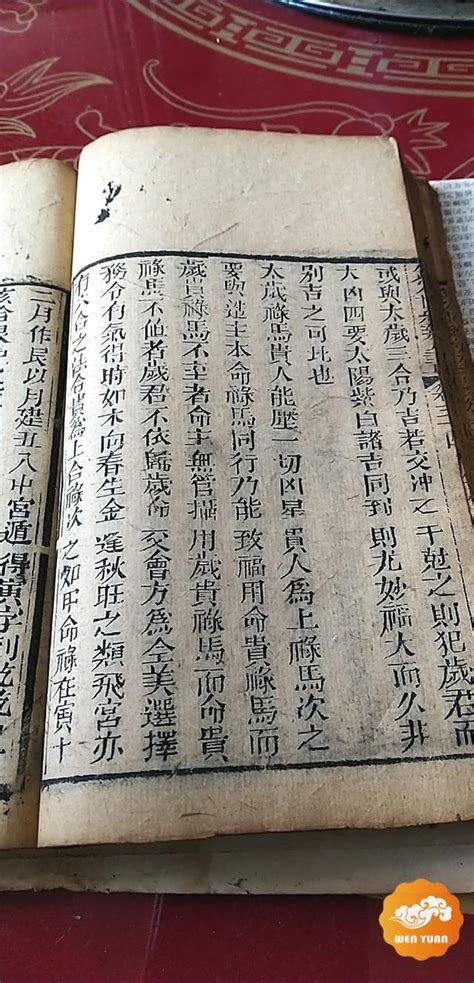 或與太歲三合乃吉若交冲之干尅之則犯歲君而
大凶四要太陽紫白諸吉同到則尤妙福大而久非
別吉之可比也
太歲祿馬貴人能壓一切凶星貴人爲上祿馬次之
要與造主本命祿馬同行乃能致福用命貴祿馬而
歲貴祿馬不至者命主無管攝用歲貴祿馬而命貴
祿馬不値者歲君不依歸歲命交會方爲全美選擇
務令有氣得時如木向春生金逢秋旺之類飛宮亦
有六合之法合貴爲上合祿次之如甲命祿在寅十
二月作艮以月建丑入中宮遁得寅字到乾
WEN YUAN